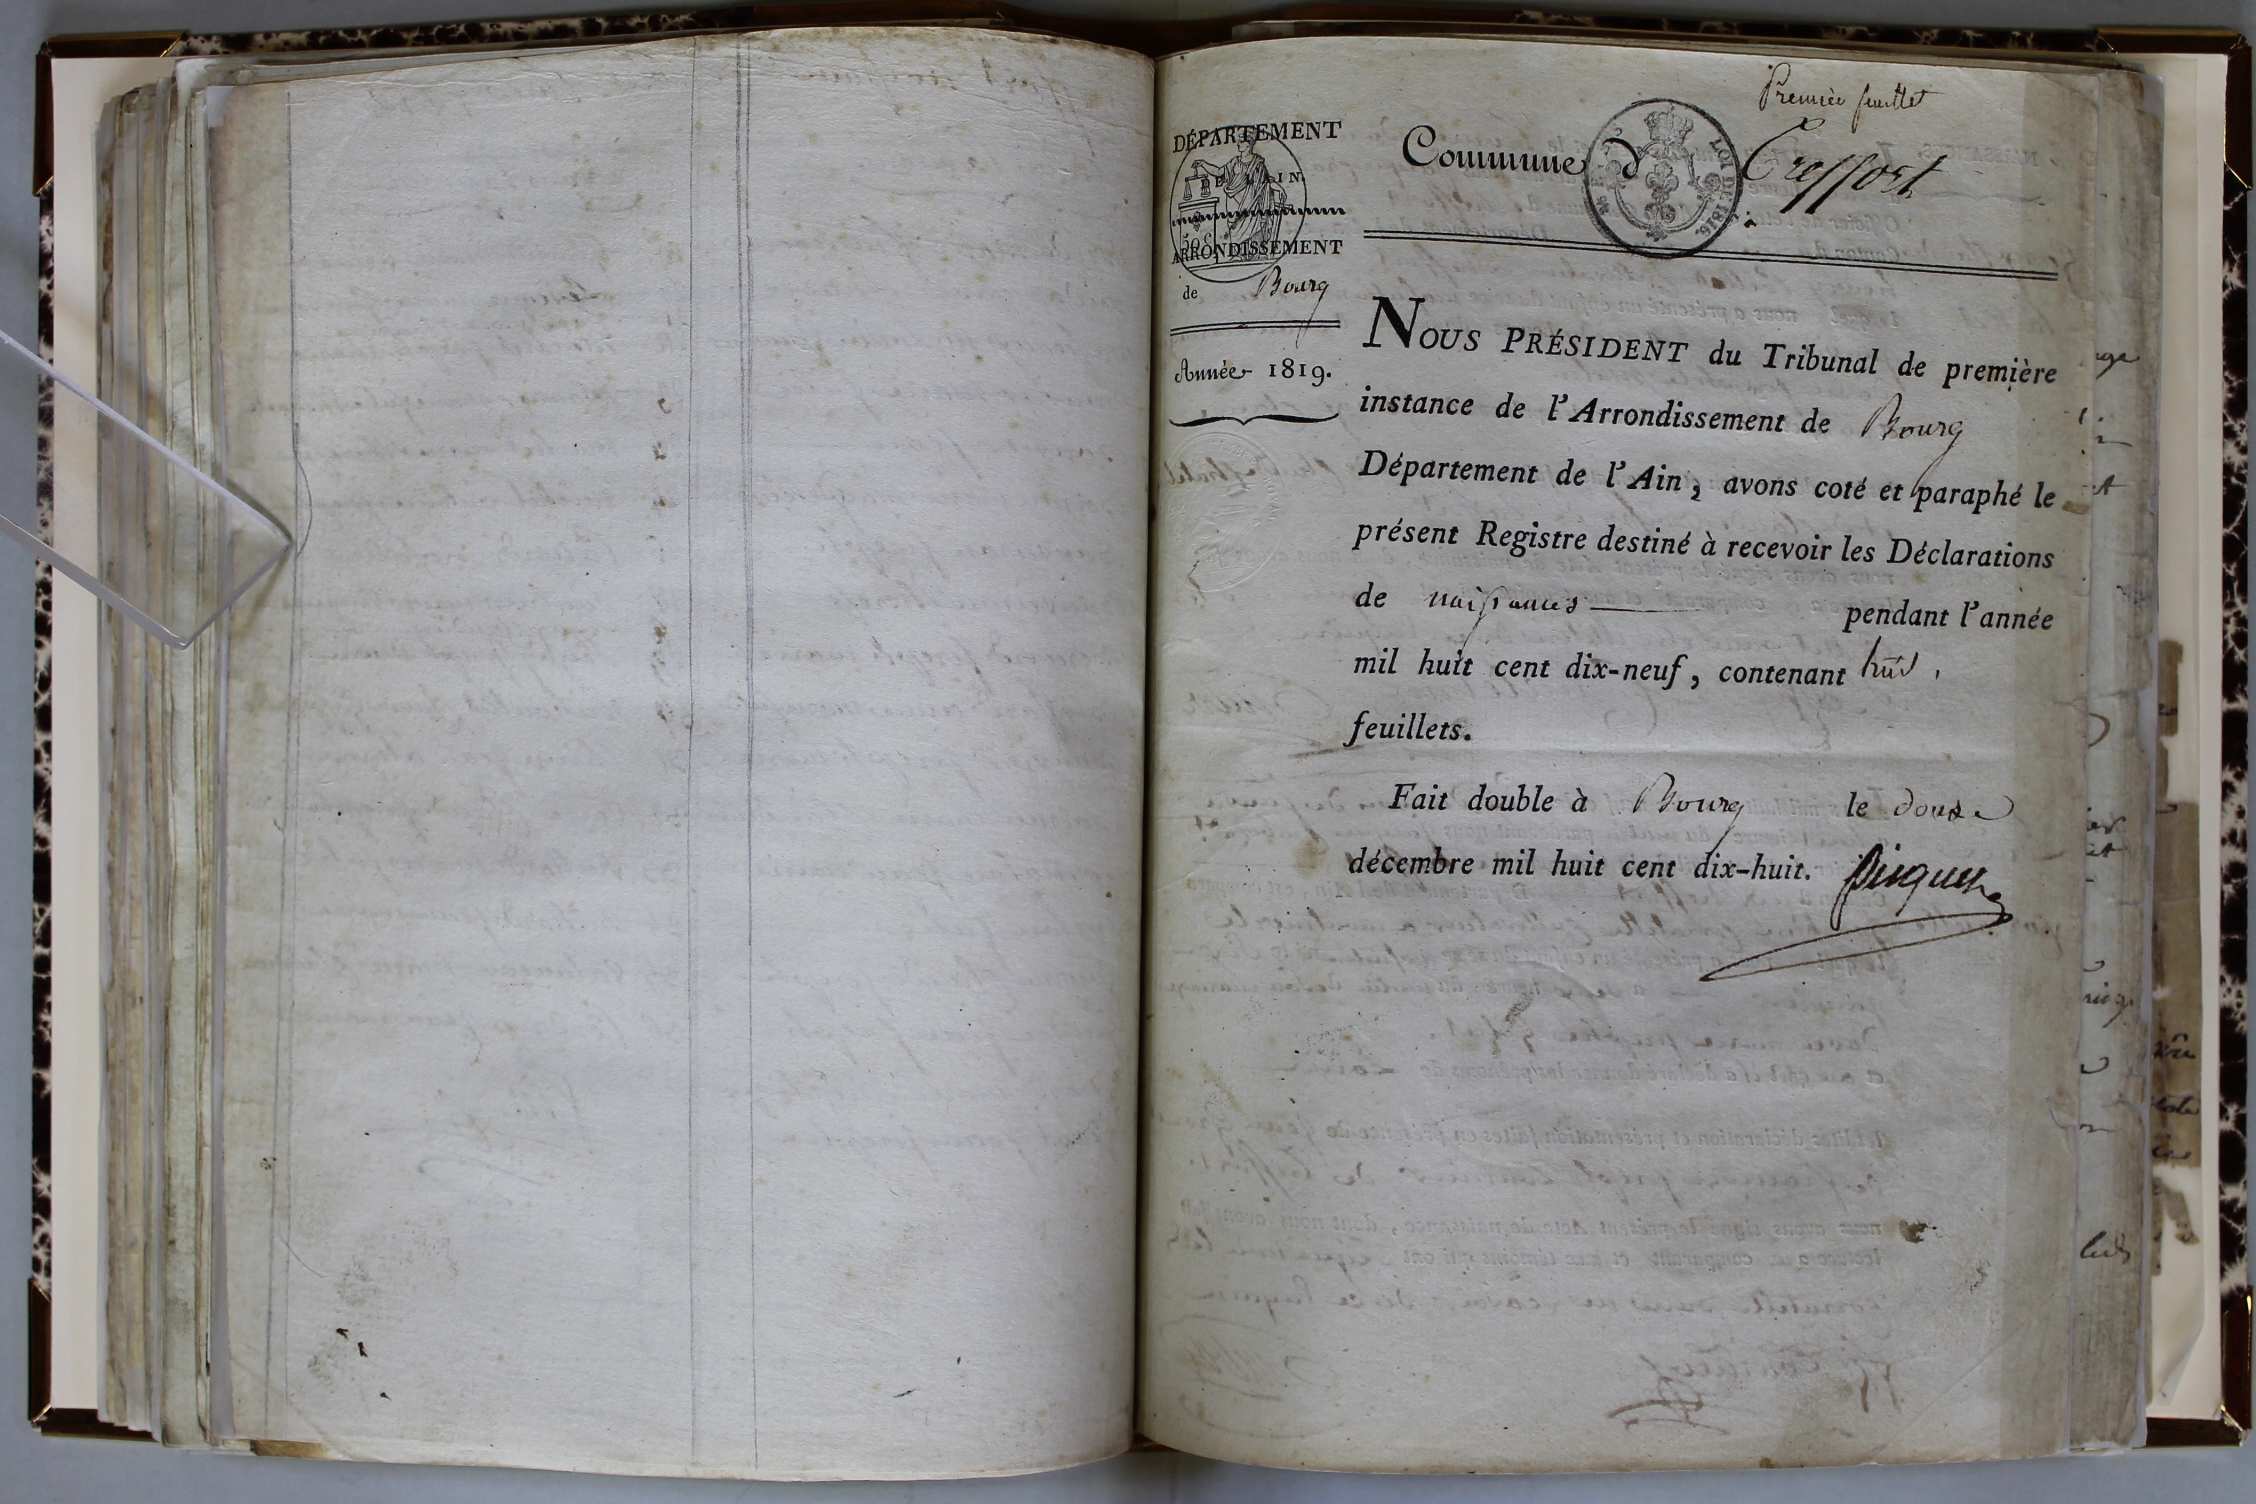 Premier feuillet
DÉPARTEMENT
DE L'AIN.
50 C
ARRONDISSEMENT
de Bourg
Année 1819.
Commune de Treffort
LOI DE 1816.
NOUS PRÉSIDENT du Tribunal de première
instance de l'Arrondissement de Bourg
Département de l'Ain, avons coté et paraphé le
présent Registre destiné à recevoir les Déclarations
de naissances pendant l'année
mil huit cent dix-neuf, contenant huit
feuillets.
Fait double à Bourg le douze
décembre mil huit cent dix-huit.